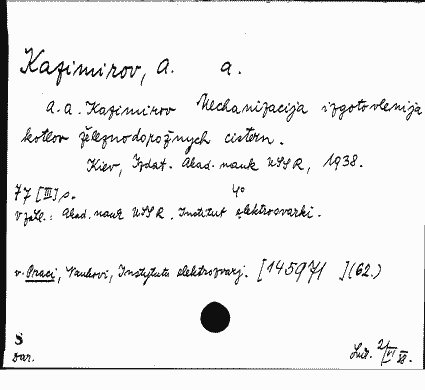 Kazimirov, A. A.
A. A. Kazimirov Mechanizacija izgotovlenija
kotlov železnodorožnych cistern.
Kiev, Izdat. Akad. nauk USSR, 1938.
77 [III] s. 4°
V záhl.: Akad. nauk USSR. Institut elektrosvarki.
v. Praci, Naukovi, Instytutu elektrozvarj. [145971 ] (62.)
S
dar.
2/VI 38.